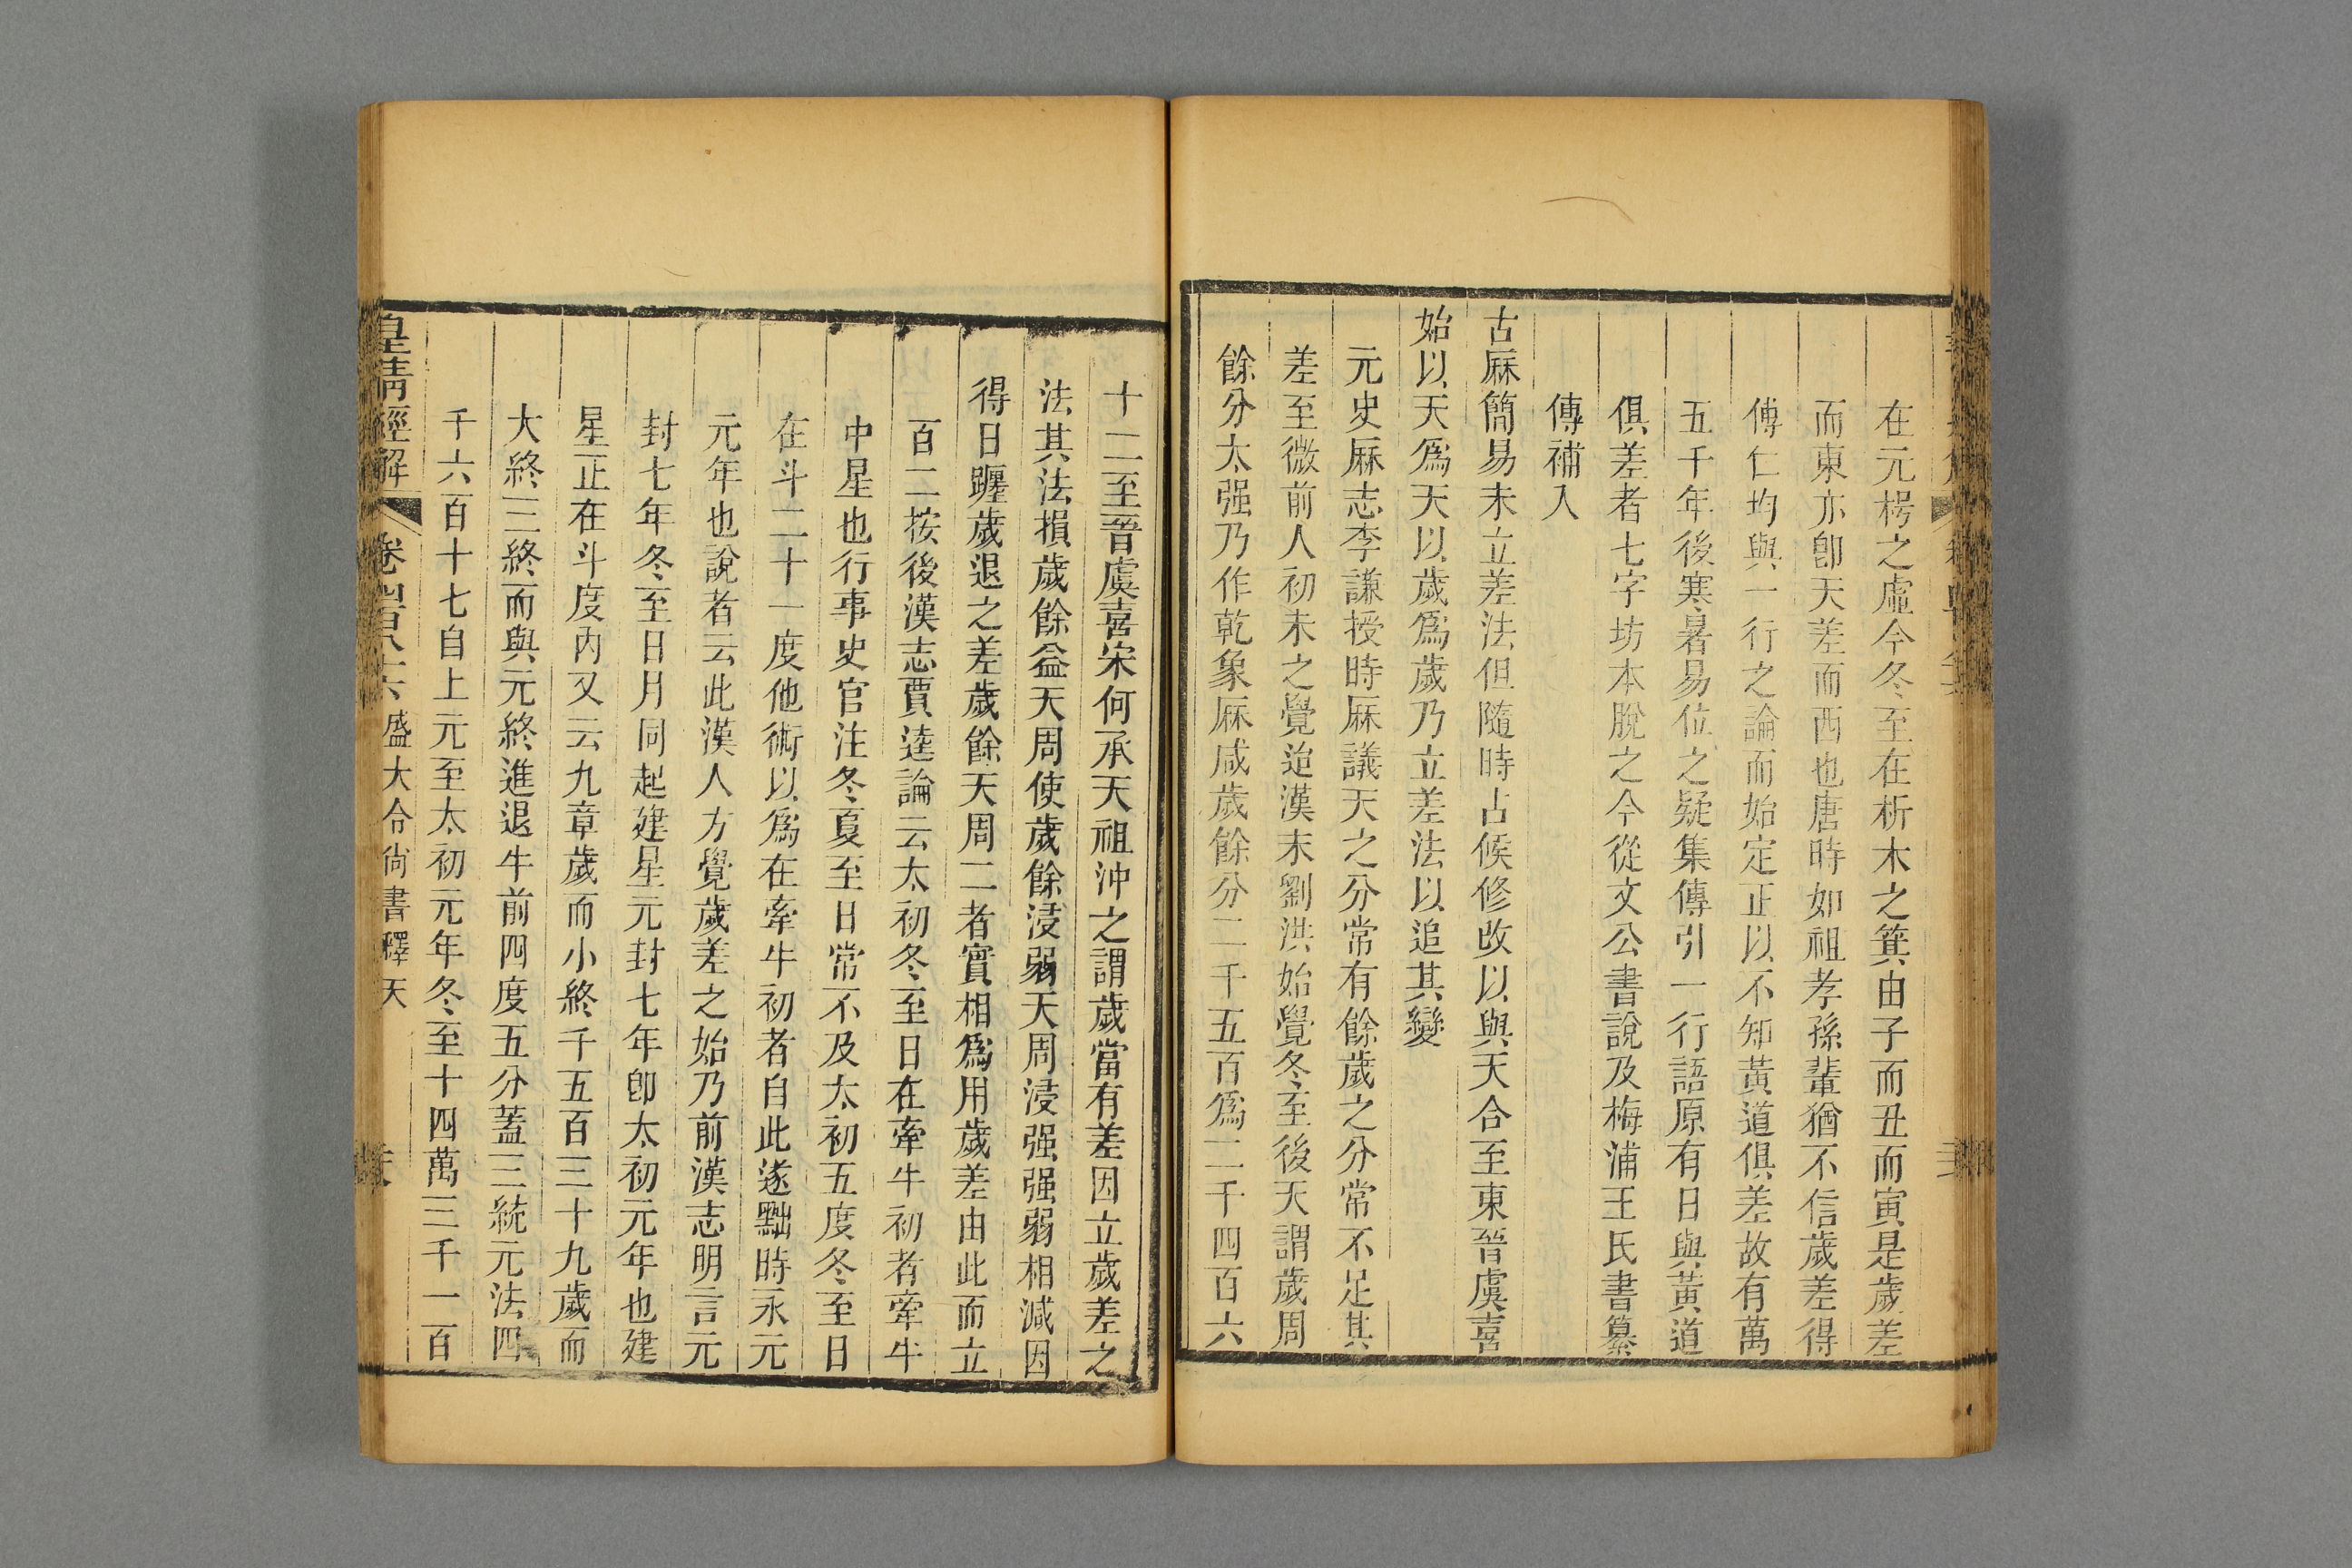 在元枵之虛今冬至在析木之箕由子而丑而寅是歲差
而東亦卽天差而西也唐時如祖孝孫輩猶不信歲差得
傅仁均與一行之論而始定正以不知黃道俱差故有萬
五千年後寒暑易位之疑集傳引一行語原有日與黃道
俱差者七字坊本脫之今從文公書說及梅浦王氏書纂
傳補入
古厤簡易未立差法但隨時占候修改以與天合至東晉虞喜
始以天爲天以歲爲歲乃立差法以追其變
元史厤志李謙授時厤議天之分常有餘歲之分常不足其
差至微前人初未之覺迨漢末劉洪始覺冬至後天謂歲周
餘分太强乃作乾象厤減歲餘分二千五百爲二千四百六
十二至晉虞喜宋何承天祖沖之謂歲當有差因立歲差之
法其法損歲餘益天周使歲餘浸弱天周浸强强弱相減因
得日躔歲退之差歲餘天周二者實相爲用歲差由此而立
百二按後漢志賈逵論云太初冬至日在牽牛初者牽牛
中星也行事史官注冬夏至日常不及太初五度冬至日
在斗二十一度他術以爲在牽牛初者自此遂黜時永元
元年也說者云此漢人方覺歲差之始乃前漢志明言元
封七年冬至日月同起建星元封七年卽太初元年也建
星正在斗度內又云九章歲而小終千五百三十九歲而
大終三終而與元終進退牛前四度五分蓋三統元法四
千六百十七自上元至太初元年冬至十四萬三千一百
皇清經解 卷四百八十六 盛大令尙書釋天